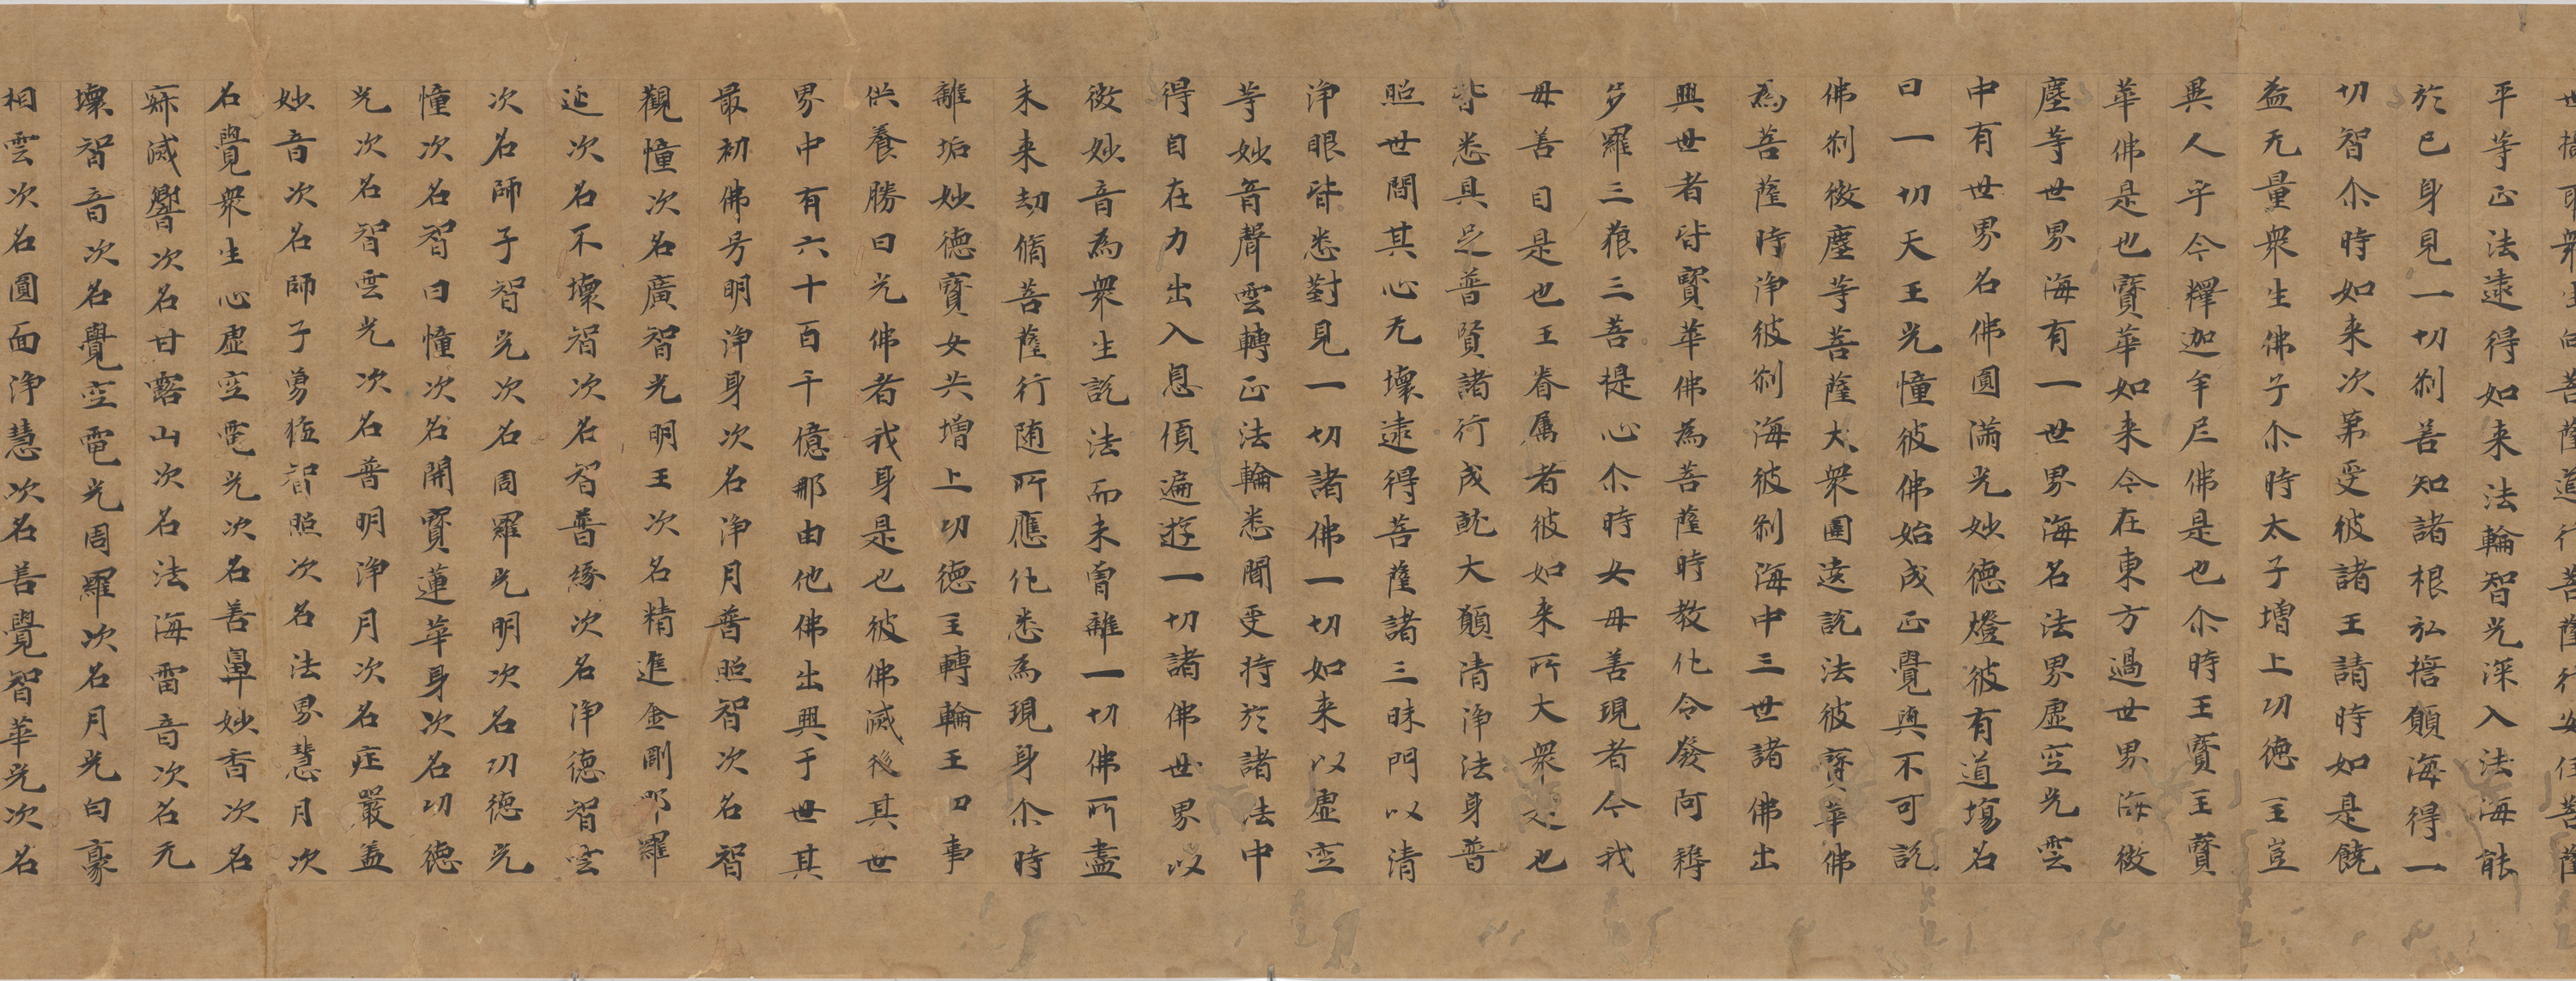 世攝取衆生向菩薩道行菩薩行安住菩薩
平等正法逮得如来法輪智光深入法海能
於已身見一切刹善知諸根弘擔願海得一
切智尒時如来次第受彼諸王請時如是饒
益无量衆生佛子尒時太子增上功徳王豈
異人乎今釋迦牟尼佛是也尒時王寳王寳
華佛是也寳華如来今在東方過世界海微
塵等世界海有一世界海名法界虛空光雲
中有世界名佛圓滿光妙徳燈彼有道塲名
曰一切天王光憧彼佛始成正覺與不可説
佛刹微塵等菩薩大衆圍遶説法彼寳華佛
為菩薩時浄彼刹海彼刹海中三世諸佛出
興世者皆寳華佛為菩薩時教化令發阿耨
多羅三藐三菩提心尒時女母善現者今我
母善目是也王眷属者彼如来所大衆是也
皆悉具足普賢諸行成就大願清浄法身普
照世間其心无壞逮得菩薩諸三昧門以清
浄眼皆悉對見一切諸佛一切如来以虛空
等妙音聲雲轉正法輪悉聞受持於諸法中
得自在力出入息頃遍遊一切諸佛世界以
微妙音為衆生説法而未曾離一切佛所盡
未来劫脩菩薩行随所應化悉為現身尒時
離垢妙徳寳女共增上功徳王轉輪王四事
供養勝日光佛者我身是也彼佛滅後其世
界中有六十百千億那由他佛出興于世其
最初佛号明浄身次名浄月普照智次名智
觀憧次名廣智光明王次名精進金剛那羅
延次名不壞智次名智普縁次名浄徳智雲
次名師子智光次名周羅光明次名功徳光
憧次名智日憧次名開寳蓮華身次名功徳
光次名智雲光次名普明浄月次名莊嚴盖
妙音次名師子勇猛智照次名法界慧月次
名覺衆生心虛空電光次名善鼻妙香次名
寂滅響次名甘露山次名法海雷音次名无
壞智音次名覺空電光周羅次名月光白豪
相雲次名圓面浄慧次名善覺智華光次名